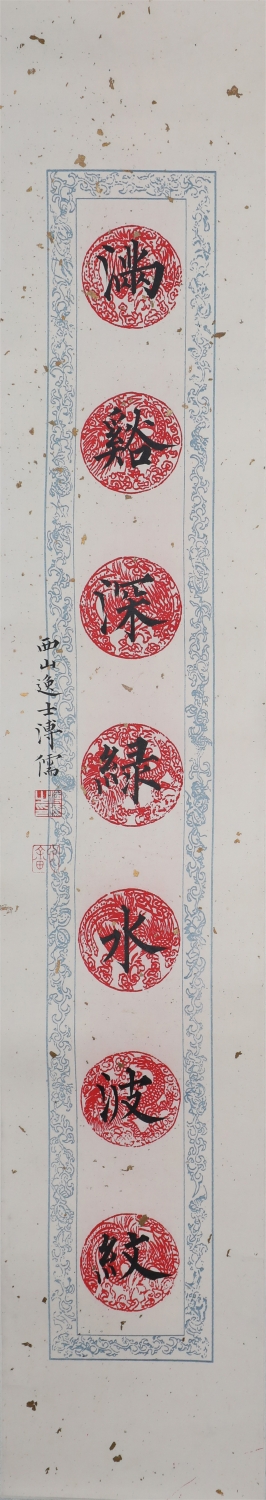 滿谿深綠水波紋
西山逸士溥儒